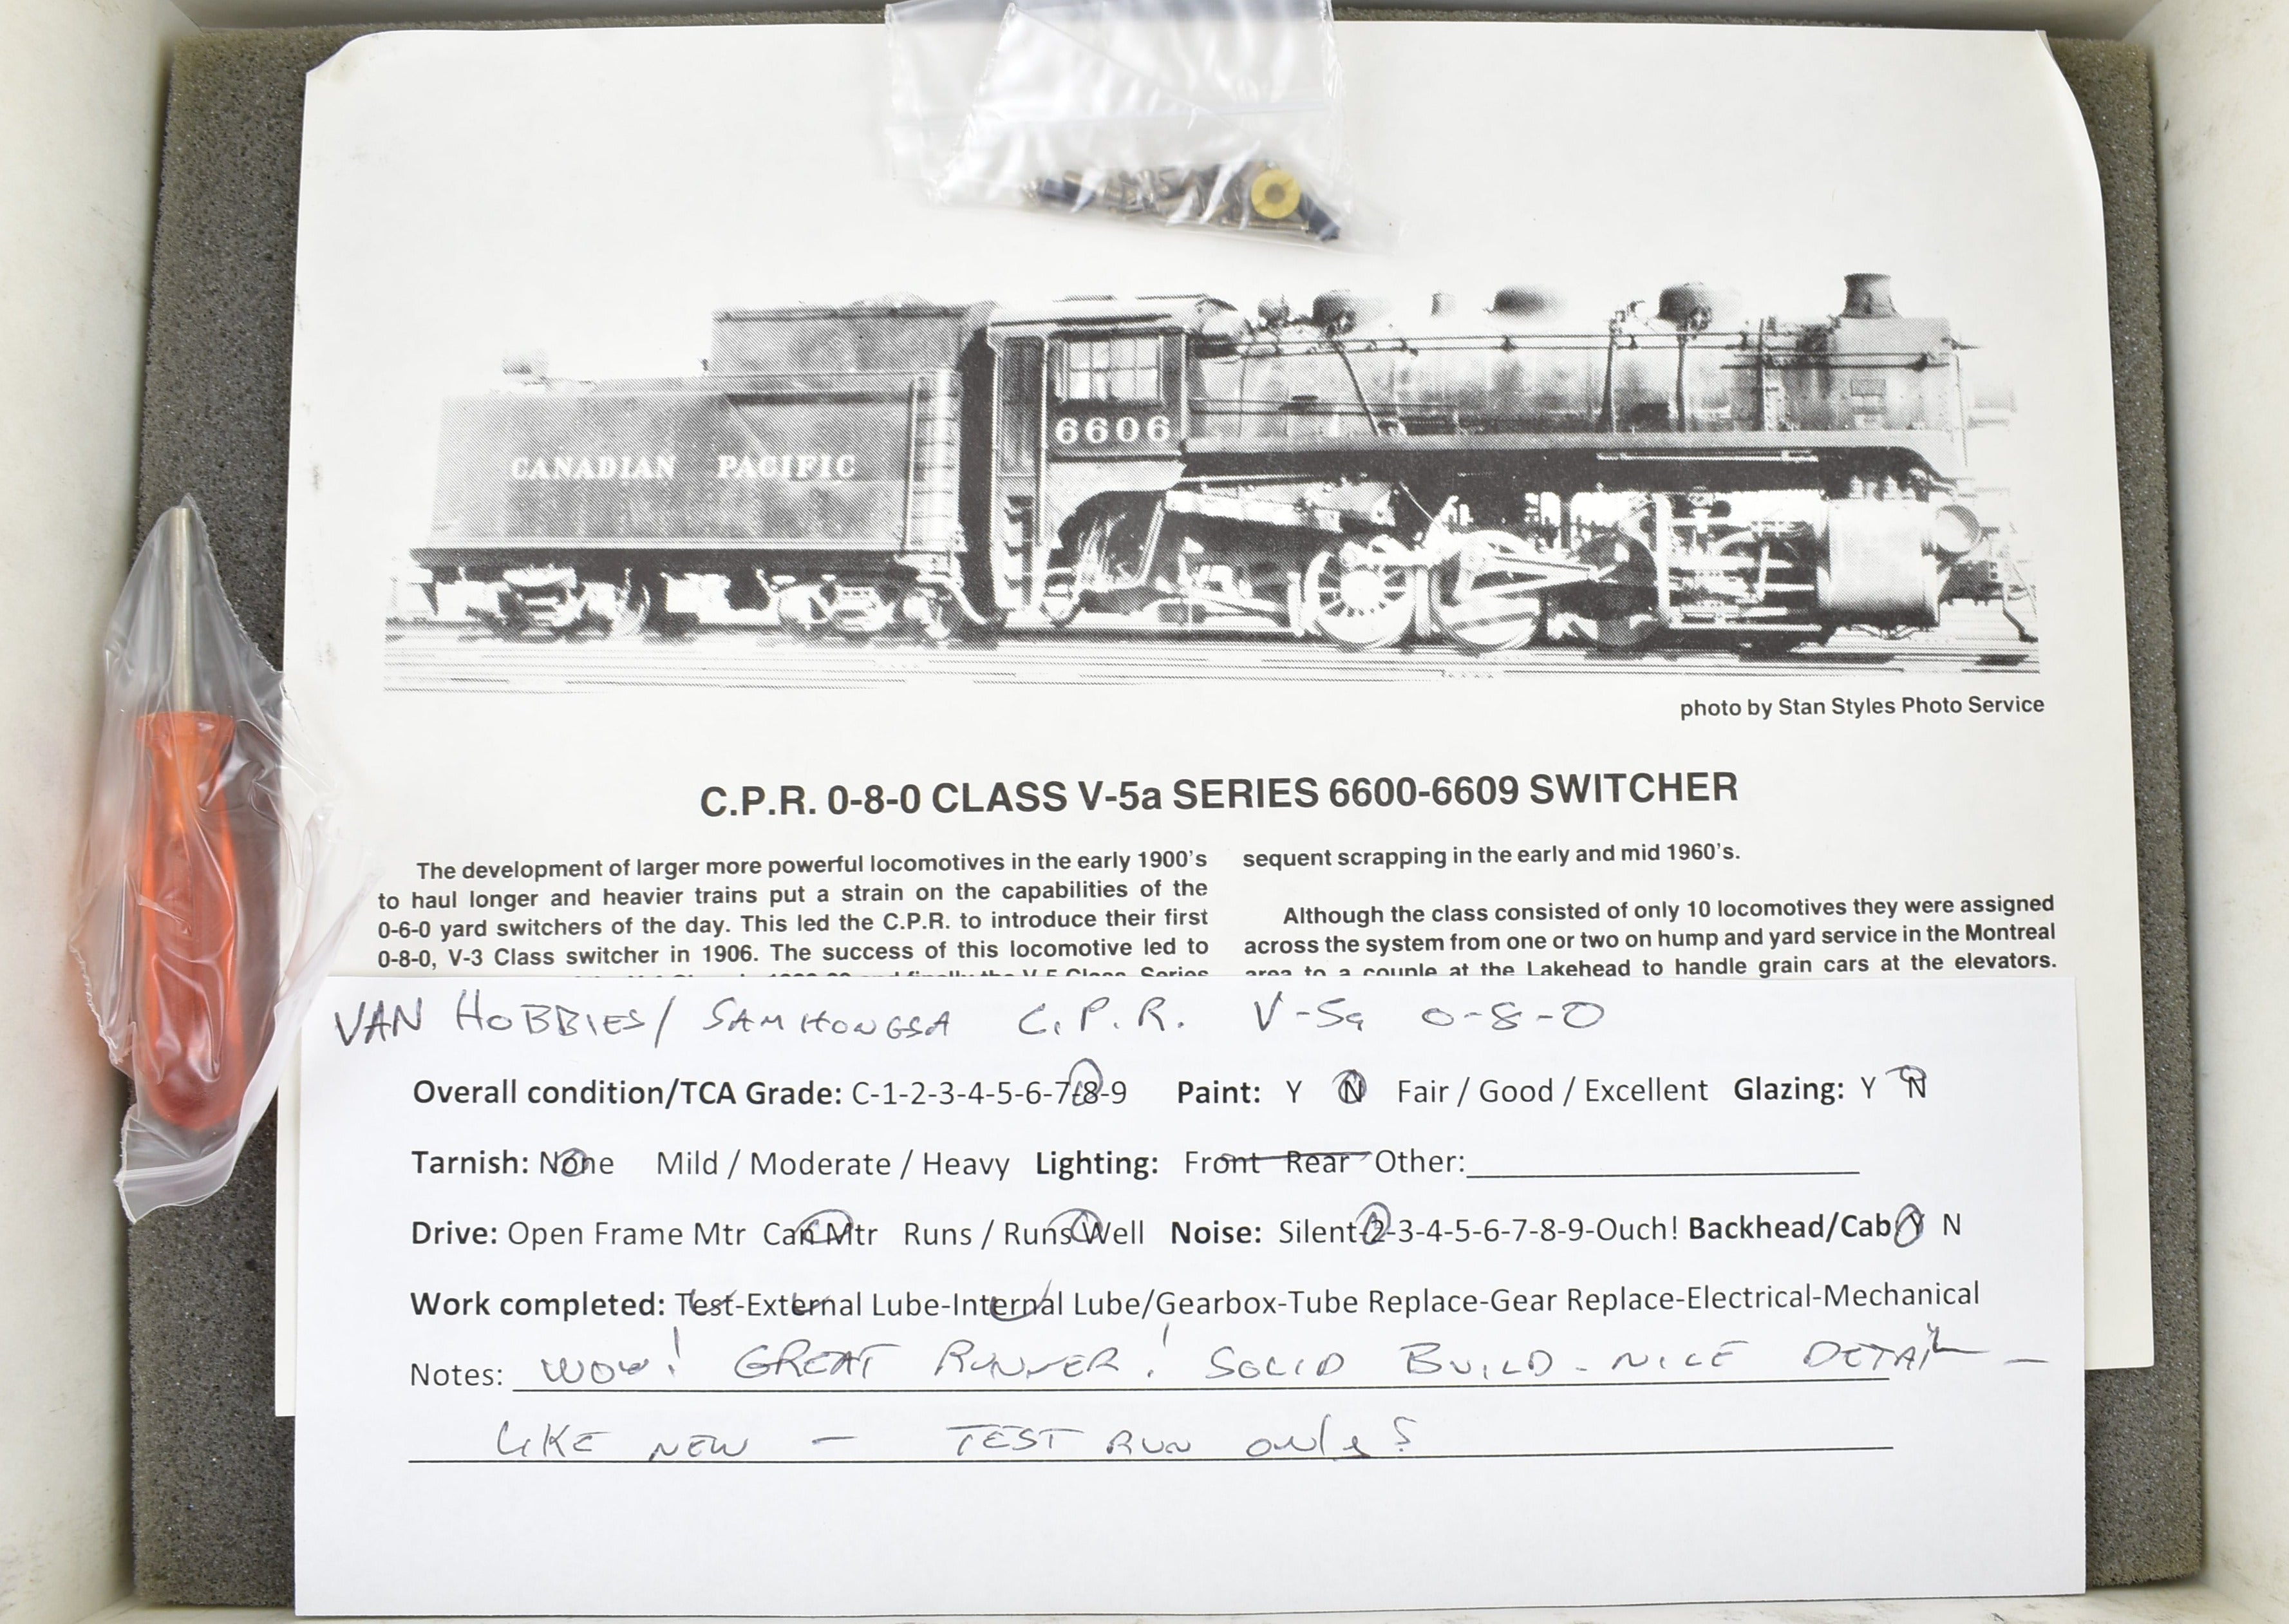 CANADIAN PACIFIC
6606
photo by Stan Styles Photo Service
C.P.R. 0-8-0 CLASS V-5a SERIES 6600-6609 SWITCHER
The development of larger more powerful locomotives in the early 1900's
to haul longer and heavier trains put a strain on the capabilities of the
0-6-0 yard switchers of the day. This led the C.P.R. to introduce their first
0-8-0, V-3 Class switcher in 1906. The success of this locomotive led to
sequent scrapping in the early and mid 1960's.
Although the class consisted of only 10 locomotives they were assigned
across the system from one or two on hump and yard service in the Montreal
area to a couple at the Lakehead to handle grain cars at the elevators.
VAN HOBBIES/ SAMHONGSA C.P.R. V-5a 0-8-0
Overall condition/TCA Grade: C-1-2-3-4-5-6-7-8-9 Paint: Y N Fair / Good / Excellent Glazing: Y N
Tarnish: None Mild / Moderate / Heavy Lighting: Front Rear Other:
Drive: Open Frame Mtr Can Mtr Runs / Runs Well Noise: Silent-2-3-4-5-6-7-8-9-Ouch! Backhead/Cab: Y N
Work completed: Test-External Lube-Internal Lube/Gearbox-Tube Replace-Gear Replace-Electrical-Mechanical
Notes: WOW! GREAT RUNNER! SOLID BUILD - NICE DETAIL -
LIKE NEW - TEST RUN only?